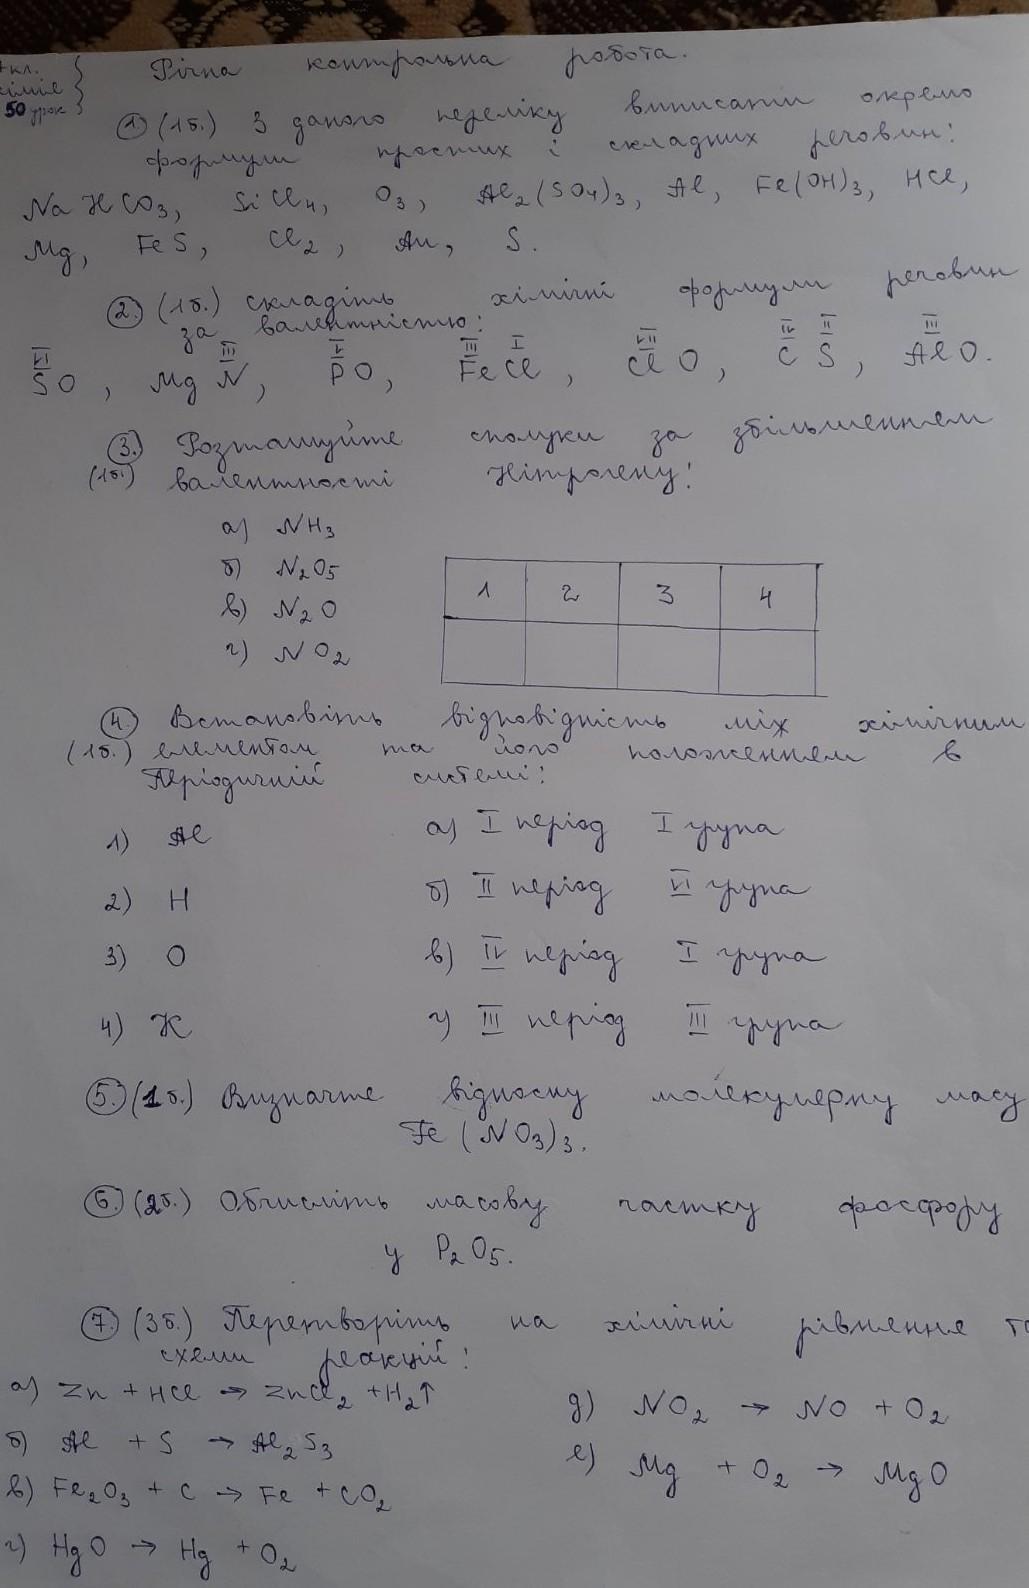 7 кл.
хімія
50 урок
Річна контрольна робота.
1. (1б.) З даного переліку виписати окремо
формули простих і складних речовин:
NaHCO3, SiCl4, O3, Al2(SO4)3, Al, Fe(OH)3, HCl,
Mg, FeS, Cl2, Au, S.
2. (1б.) Складіть хімічні формули речовин
за валентністю:
VI III V III I VII IV II III
SO, MgN, PO, FeCl, ClO, CS, AlO.
3. Розташуйте сполуки за збільшенням
(1б.) валентності Нітрогену:
а) NH3
б) N2O5
в) N2O
г) NO2
1 2 3 4
4. Встановіть відповідність між хімічним
(1б.) елементом та його положенням в
Періодичній системі:
1) Al а) I період I група
2) H б) II період VI група
3) O в) IV період I група
4) K г) III період III група
5. (1б.) Визначте відносну молекулярну масу
Fe(NO3)3.
6. (2б.) Обчисліть масову частку фосфору
у P2O5.
7. (3б.) Перетворіть на хімічні рівняння
схеми реакцій:
а) Zn + HCl → ZnCl2 + H2↑
б) Al + S → Al2S3
в) Fe2O3 + C → Fe + CO2
г) HgO → Hg + O2
д) NO2 → NO + O2
е) Mg + O2 → MgO